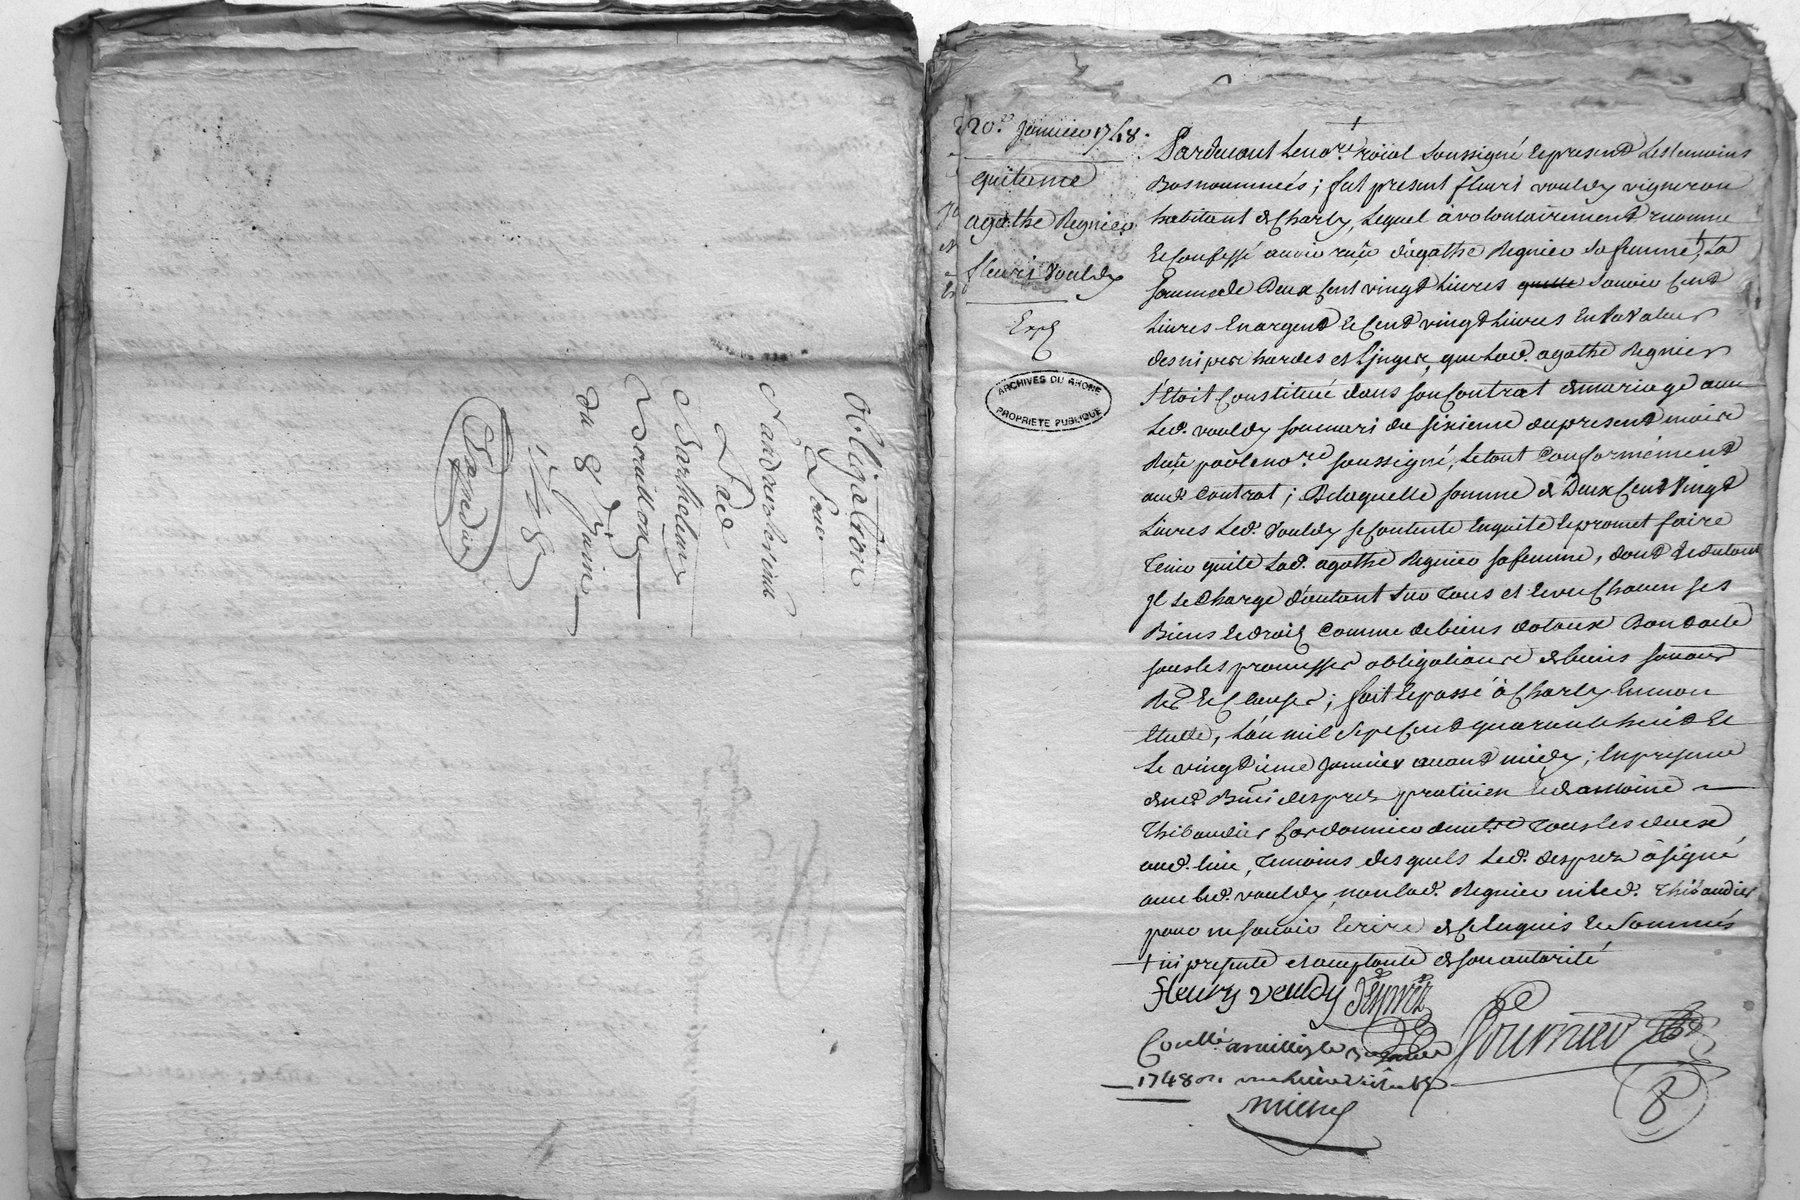 obligaõn
Pour
Sandrieu
Barthelemy
Doudon
du 8 Juin
1748
Expediée
20e. Janvier 1748.
quitance
agathe Regnier
fleuris Vouldy
Exp
ARCHIVES DU RHONE
PROPRIETE PUBLIQUE
Pardevant Le nore. roial soussigné et present Les temoins
Bas nommés; fut present fleuri vouldy vigneron
habitant de Charly, Lequel a volontairement reconnu
Et Confessé avoir reçu d'agathe Regnier sa femme, + La
somme de Deux Cent vingt Livres quelle savoir Cent
Livres En argent Et Cent vingt Livres En La Valeur
des nipes hardes et Linges, que Lad. agathe Regnier
s'Etoit Constitué dans son Contrat de mariage avec
Led. vouldy son mari du sixieme du present mois
Reçu par Le nore. soussigné, Le tout Conformément
aud. Contrat; De laquelle somme de Deux Cent Vingt
Livres Led. Vouldy se Contente En quite Et promet faire
Tenir quite Lad. agathe Regnier sa femme, dont Et du tout
Il se Charge d'autant sur tous et un Chacun ses
Biens Et droits Comme de biens dotaux Dont acte
sous les promesses obligations de biens
Et Clauses; fait Et passé à Charly En mon
Etude, L'an mil sept Cent quarante huit Et
Le vingtieme Janvier avant midy; En presence
de me. Desprez praticien Et d'antoine
Thibaudier Cordonnier tous les deux
aud. lieu, Temoins des quels Led. desprez a signé
avec Led. vouldy, non Lad. Regnier ni Led. Thibaudier
pour ne savoir Ecrire de Ce Enquis Et Sommés
+ ici presente et acceptante de son autorité
fleury vouldy Desprez
Fournier
Conllé. a millery Le Janvier
1748